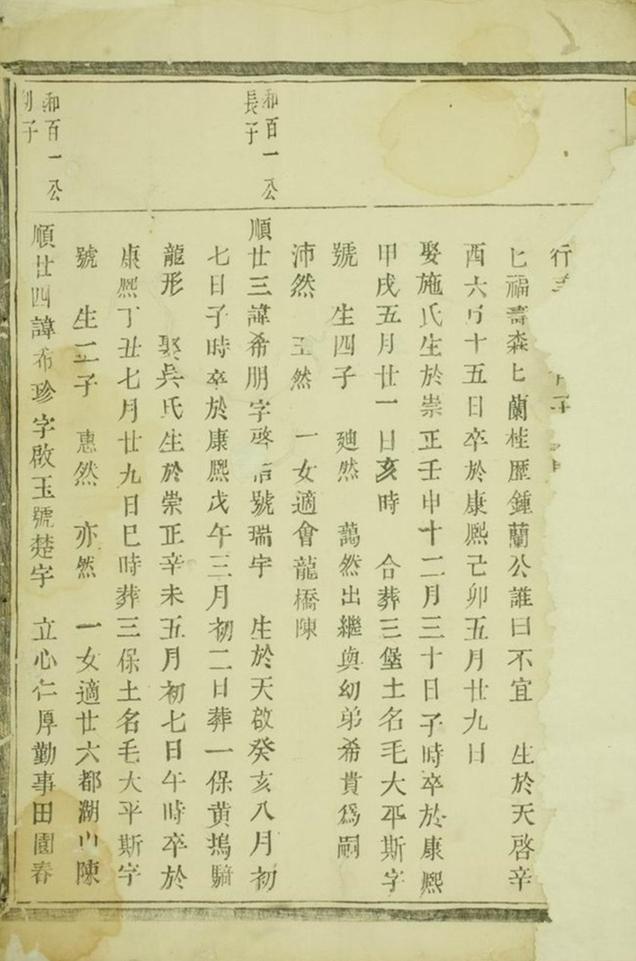 行
七福壽森七蘭桂歷鍾蘭公誰曰不宜　生於天啓辛
酉六月十五日卒於康熙己卯五月廿九日
娶施氏生於崇正壬申十二月三十日子時卒於康熙
甲戌五月廿一日亥時　合葬三堡土名毛大平斯字
號　生四子　廸然　藹然出繼與幼弟希貴爲嗣
沛然　玉然　一女適會龍橋陳
和百一公
長子
順廿三諱希朋字啓 號瑞宇　生於天啟癸亥八月初
七日子時卒於康熙戊午三月初二日葬一保黄塢
龍形　娶吳氏生於崇正辛未五月初七日午時卒於
康熙丁丑七月廿九日巳時葬三保土名毛大平斯字
號　生二子　惠然　亦然　一女適廿六都湖山陳
和百一公
子
順廿四諱希珍字啟玉號楚宇　立心仁厚勤事田園春